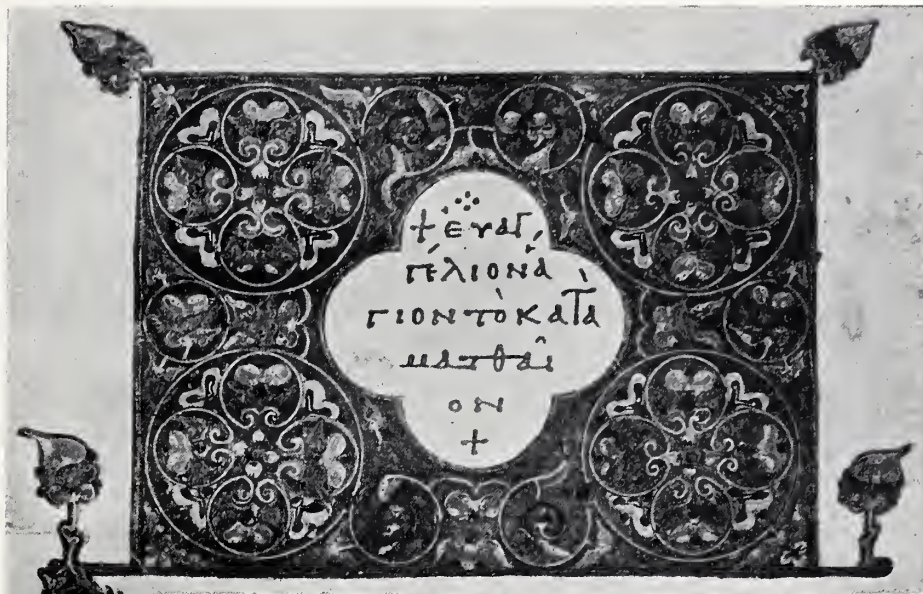 + ευαγ
γέλιον ἅ
γιον τὸ κατὰ
ματθαῖ
ον
+